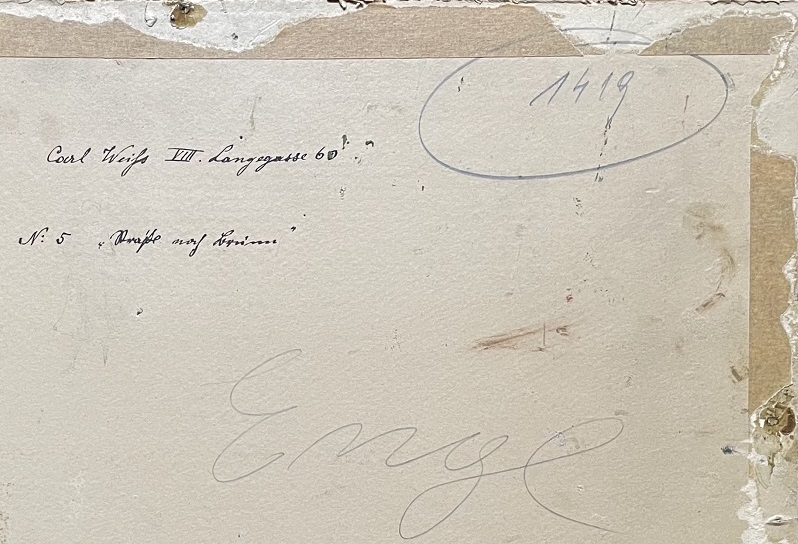 1419
Carl Weiß VIII. Langegasse 60
N: 5 „Straße nach Brünn"
Enge